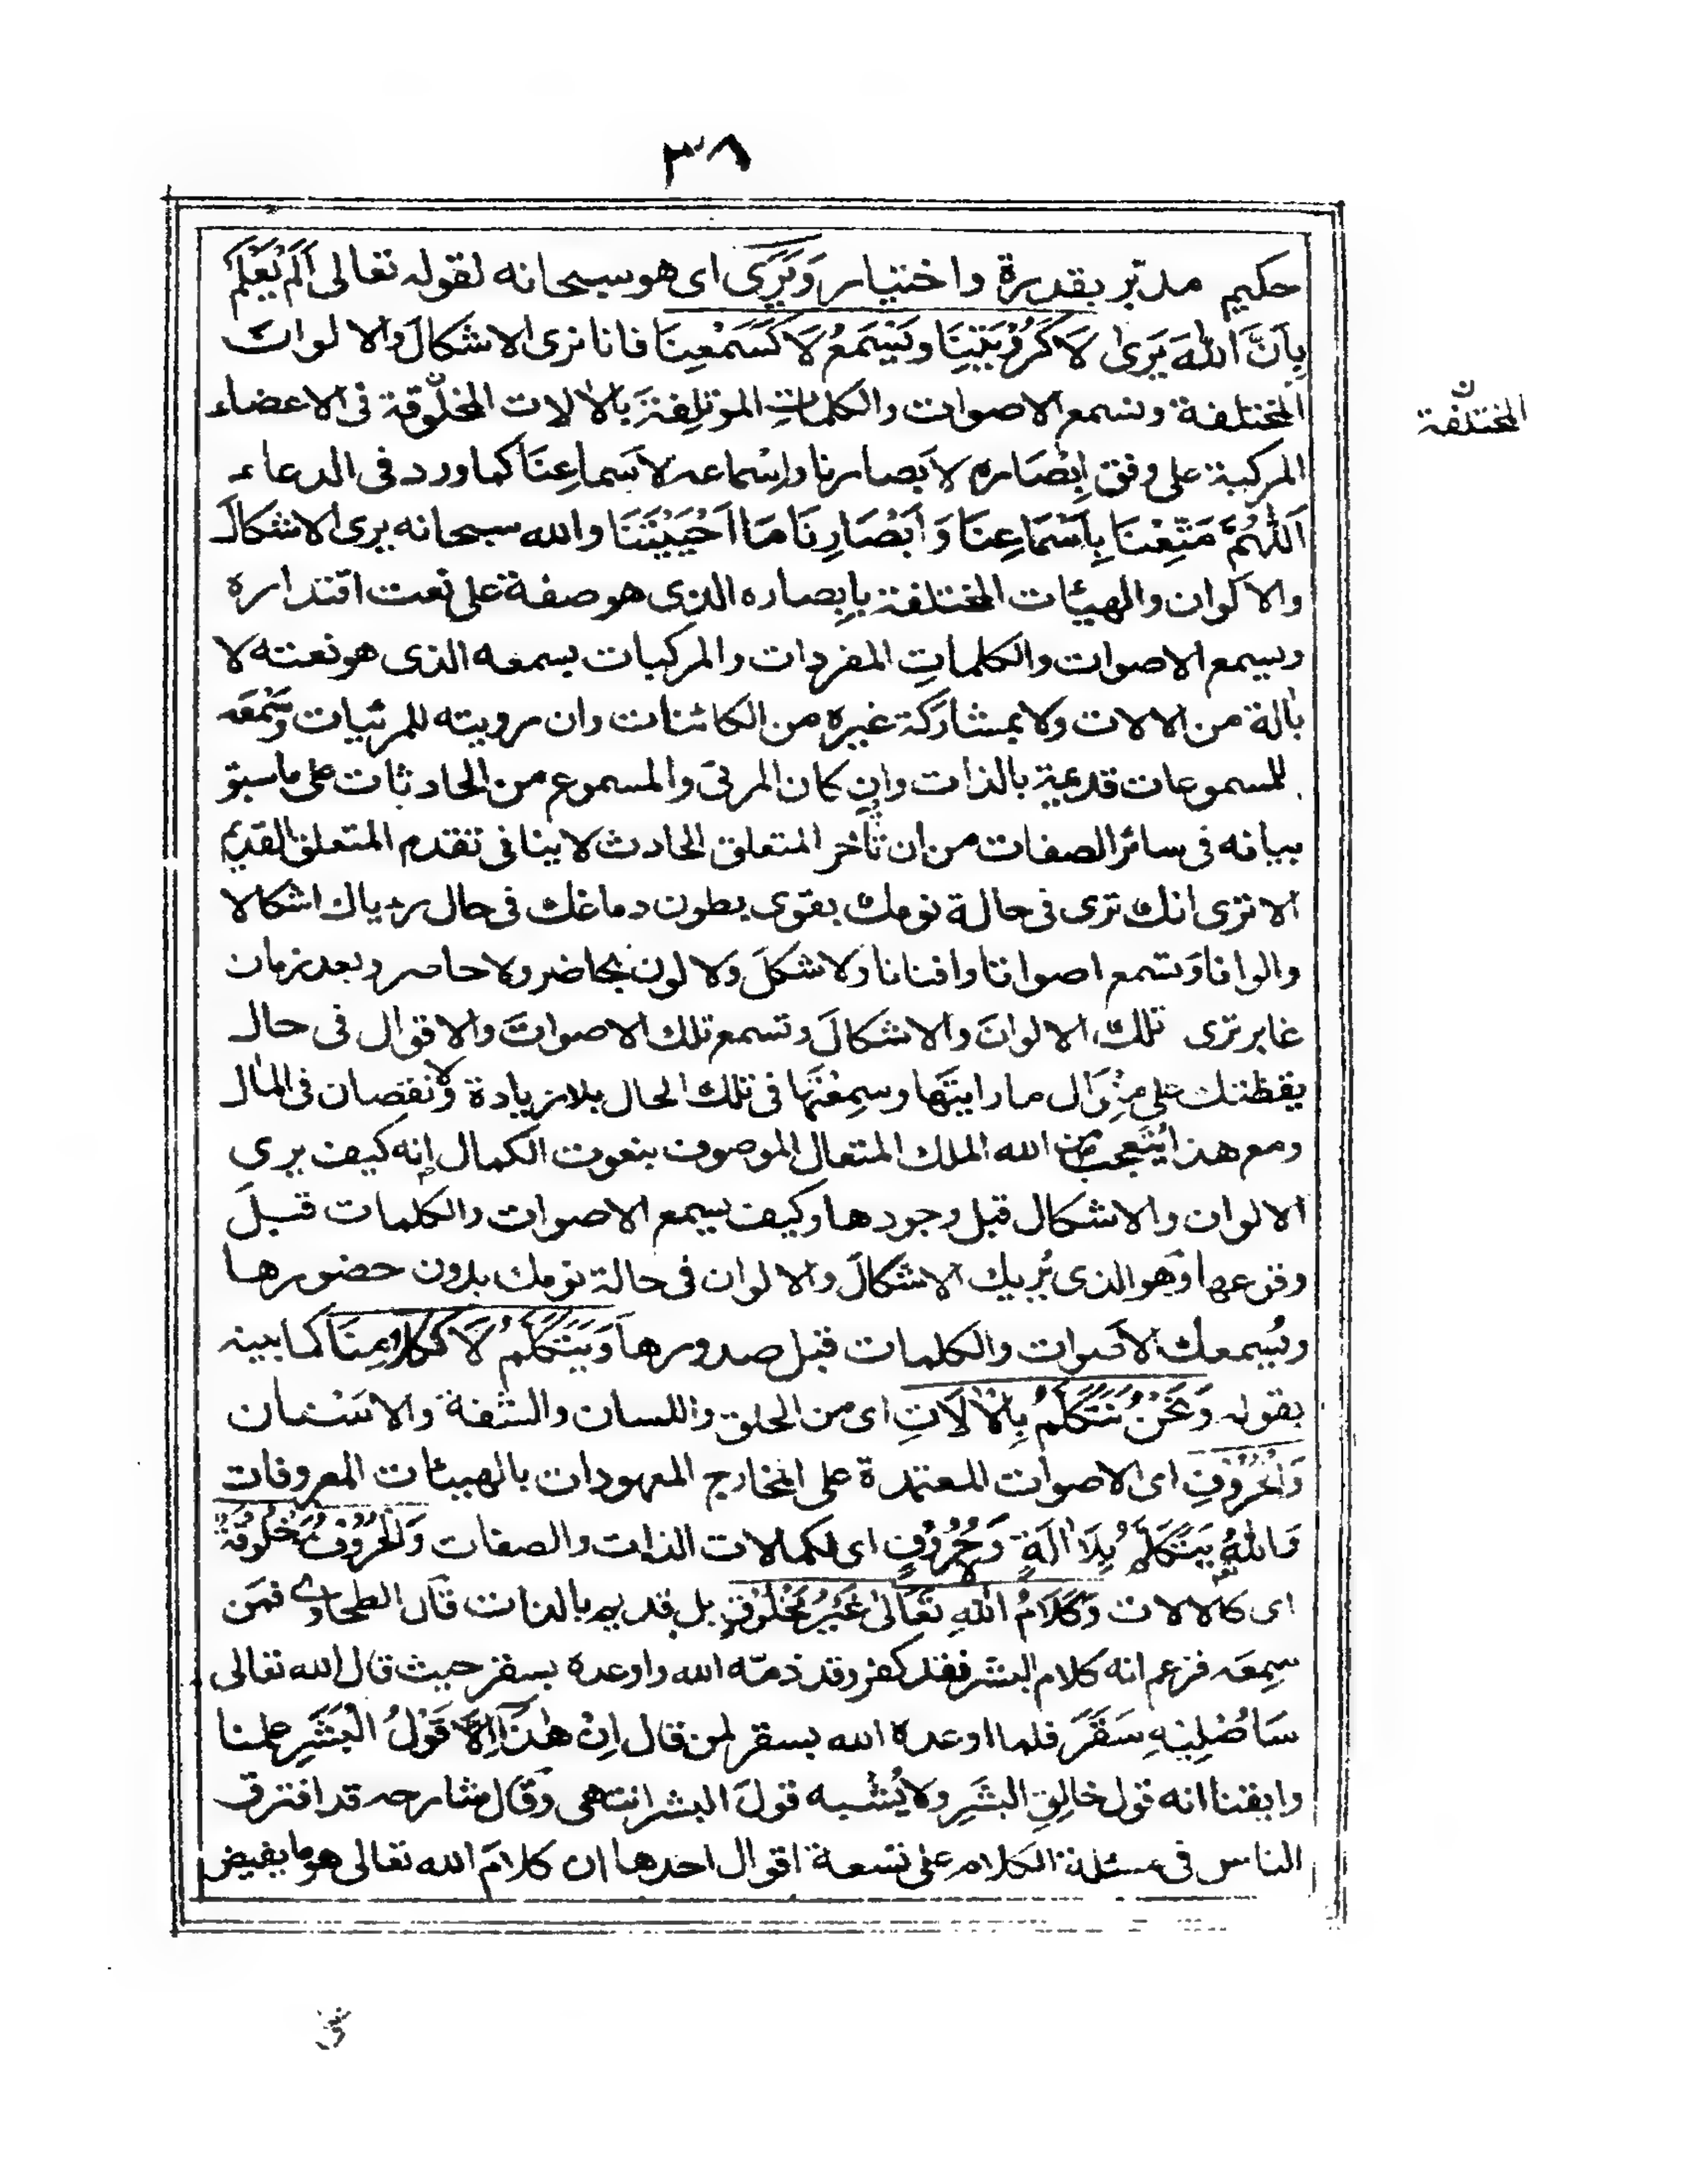 ٣٨
حكيم مدبّر بقدرة واختيار وَيَرَى اى هو سبحانه لقوله تعالى اَلَمْ يَعْلَمْ
بِاَنَّ اللهَ يَرىٰ لَا كَرُؤْيَتِنَا وَيَسْمَعُ لَا كَسَمْعِنَا فانا نرى الاشكالَ والالوات
المختلفة ونسمع الاصوات والكلماتِ المؤتلِفةَ بالآلات المخلوقة فى الاعضاء
المختلفة ن
المركبة على وفق اِبْصَاره لاَبصارنا واِسْماعه لاَسَماعِنَا كما ورد فى الدعاء
اَللّٰهُمَّ مَتِّعْنَا بِاَسْمَاعِنَا وَاَبْصَارِنَا مَا اَحْيَيْتَنَا والله سبحانه يرى الاشكالَ
والاكوان والهيئات المختلفة بابِصاره الذى هو صفة على نعت اقتداره
ويسمع الاصوات والكلماتِ المفردات والمركبات بسمعه الذى هو نعته لا
بآلة من الالات ولا بمشاركة غيره من الكائنات وان رويته للمرئيات وسَمْعَه
للمسموعات قديمة بالذات وان كان المرئى والمسموع من الحادثات على ما سبق
بيانه فى سائر الصفات من ان تأخر المتعلق الحادث لا ينافى تقدم المتعلق القديم
الا ترى انك ترى فى حالة نومك بقوى بطون دماغك فى حال رؤياك اشكالا
والوانا وَتسمع اصواتا وافنانا ولا شكلَ ولا لون بحاضر ولا حاصر وبعد زمان
غابر ترى تلك الالوانَ والاشكالَ وتسمع تلك الاصواتَ والاقوال فى حال
يقظتك على مِنْوَال ما رايتَها وسمِعْتَها فى تلك الحال بلا زيادة ولا نقصان فى المآل
ومع هذا يُتعجب من الله الملك المتعال الموصوف بنعوت الكمال اِنه كيف يرى
الالوان والاشكال قبل وجودها وكيف يسمع الاصوات والكلمات قبلَ
وقوعها وَهو الذى يُريك الاشكالَ والالوان فى حالة نومك بدون حضورها
ويُسمعك الاصوات والكلمات قبل صدورها وَيَتَكَلَّمُ لَا كَكَلَامِنَا كما بينه
بقوله وَنَحْنُ نَتَكَلَّمُ بِالْآلَاتِ اى من الحلق واللسان والشفة والاسْنان
وَالْحُرُوفِ اى الاصوات المعتمدة على المخارج المعهودات بالهيئات المعروفات
وَاللهُ يَتَكَلَّمُ بِلَا اٰلَةٍ وَحُرُوْفٍ اى لكمالات الذات والصفات وَالْحُرُوْفُ مَخْلُوقَةٌ
اى كالالات وَكَلَامُ اللهِ تَعَالىٰ غَيْرُ مَخْلُوْقٍ بل قديم بالذات قال الطحاوى فمَن
سمِعَه فزعم انه كلام البشر فقد كفر وقد ذمّه الله واوعده بسقر حيث قال الله تعالى
سَاُصْلِيْهِ سَقَرَ فلما اوعده الله بسقر لمن قال اِنْ هٰذَا اِلَّا قَوْلُ الْبَشَرِ علمنا
وايقنا انه قول خالِقِ البشَرِ ولا يُشْبه قولَ البشر انتهى وَقال شارحه قد افترق
الناس فى مسئلة الكلام على تسعة اقوال احدها ان كلامَ الله تعالى هو ما يفيض